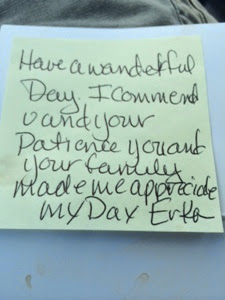 Have a wandekful
Day. I commend
u and your
Patience you and
your family
made me appriciate
my Day Erka